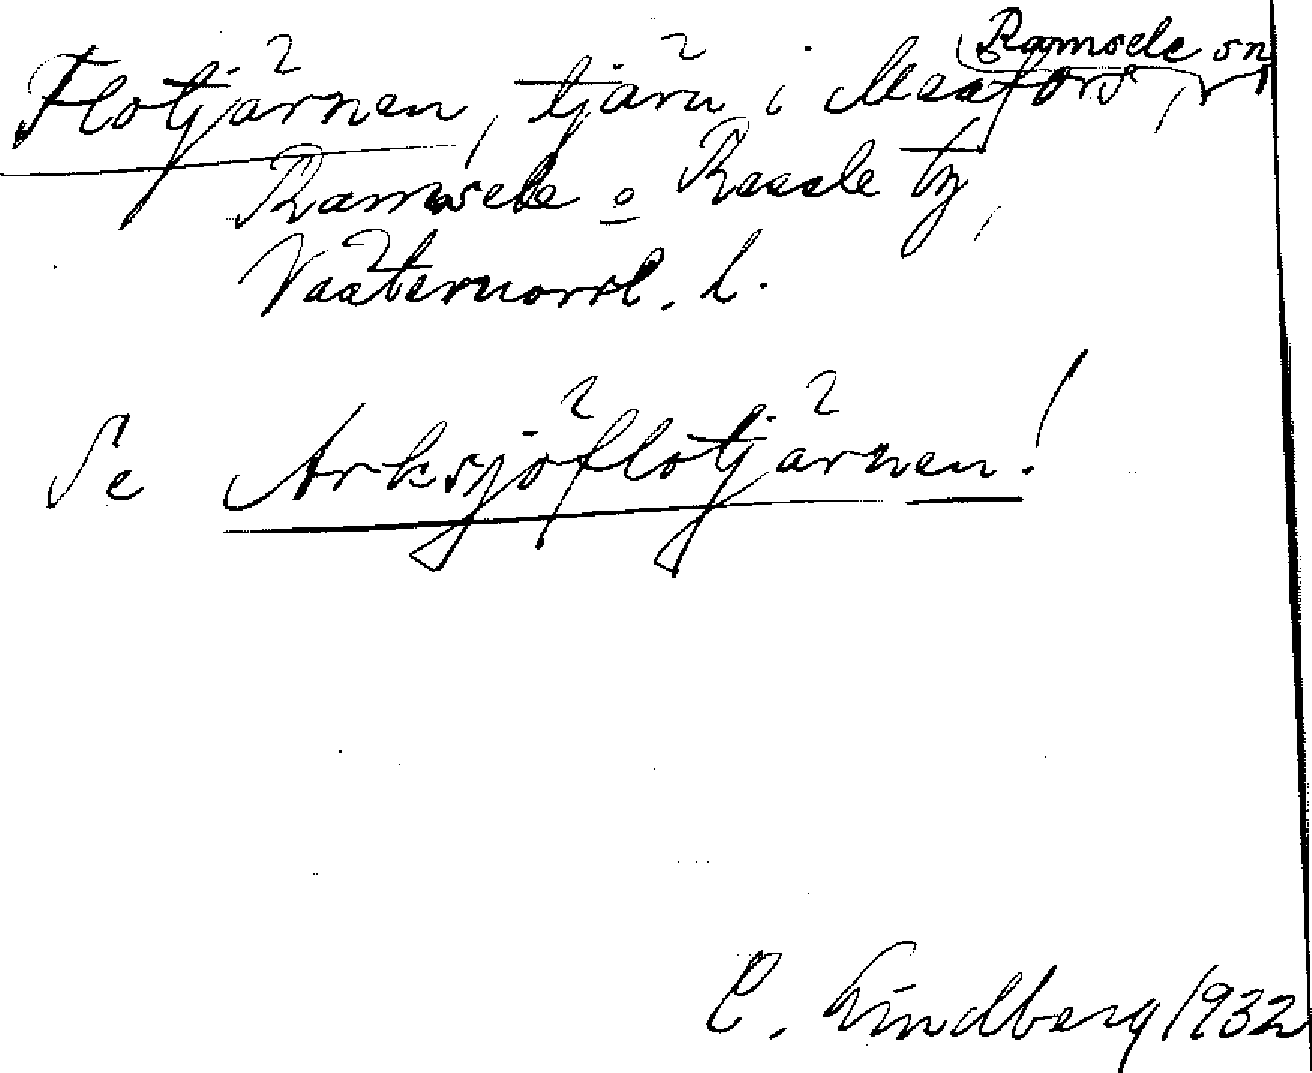 Ramsele sn
Flotjärnen, tjärn i
Ramsele o Resele tg,
Västernorrl. l.
Se Arksjöflotjärnen!
C. Lindberg 1932